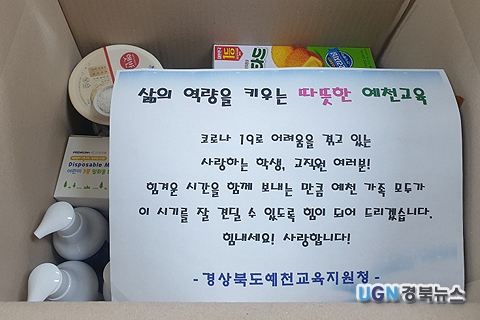 삶의 역량을 키우는 따뜻한 예천교육
코로나 19로 어려움을 겪고 있는
사랑하는 학생, 교직원 여러분!
힘겨운 시간을 함께 보내는 만큼 예천 가족 모두가
이 시기를 잘 견딜 수 있도록 힘이 되어 드리겠습니다.
힘내세요! 사랑합니다!
- 경상북도예천교육지원청 -
PREMIUM
Disposable M
어린이
UGN경북뉴스